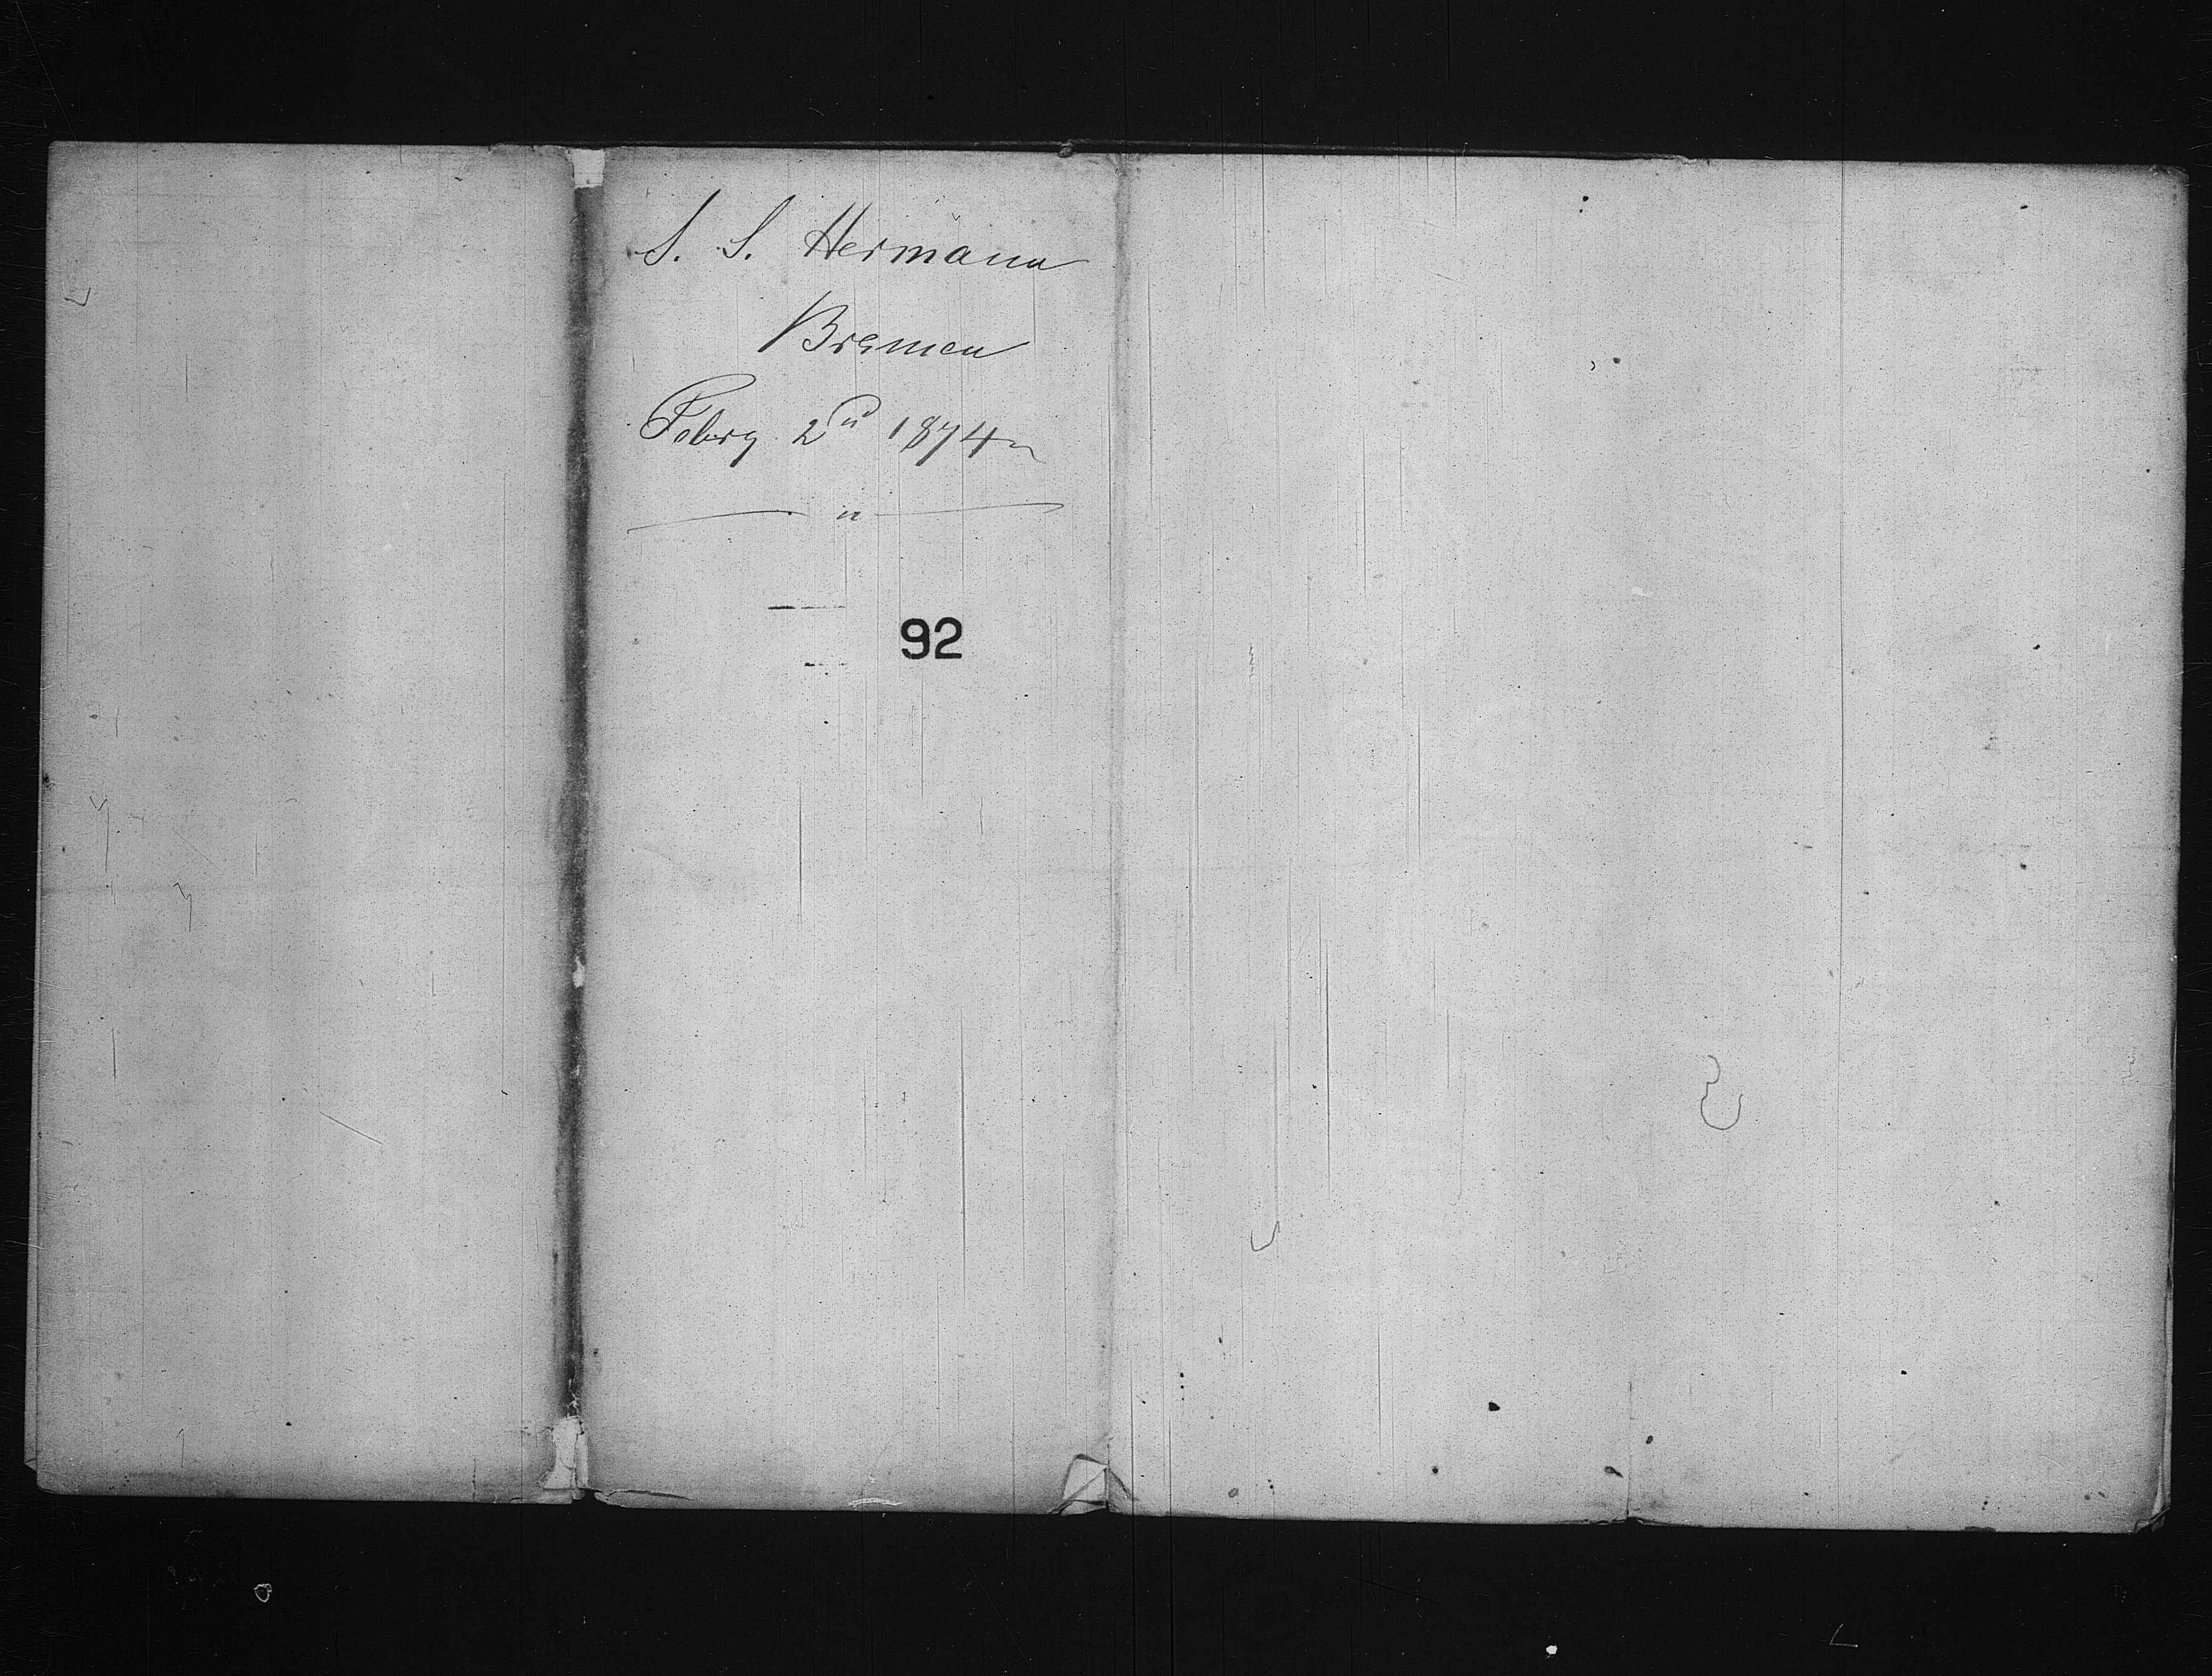 S. S. Hermann
Bremen
Febry 2d 1874
92